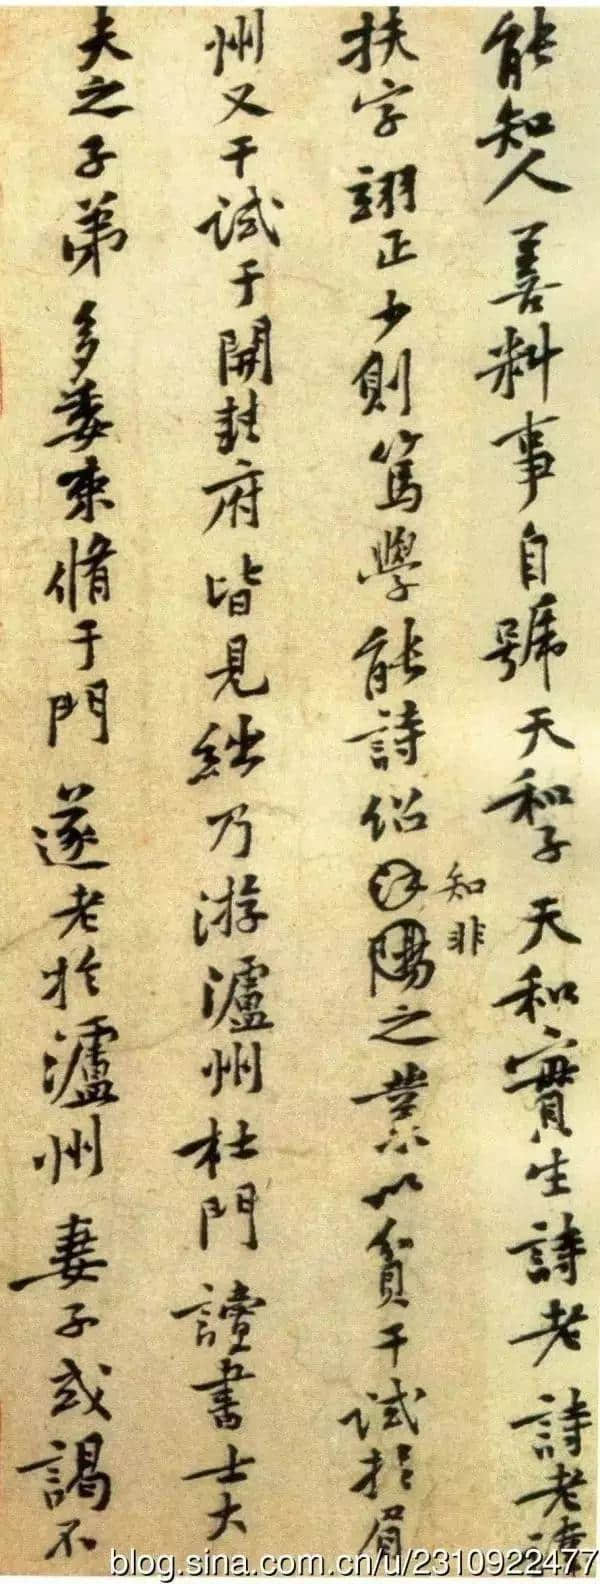 能知人善料事自號天和子天和實生詩老詩老諱
扶字翊正少則篤學能詩紹之業以貧干試於眉
知非
州又干試于開封府皆見絀乃游瀘州杜門讀書士大
夫之子弟多委束脩于門遂老於瀘州妻子或謁不
blog.sina.com.cn/u/2310922477